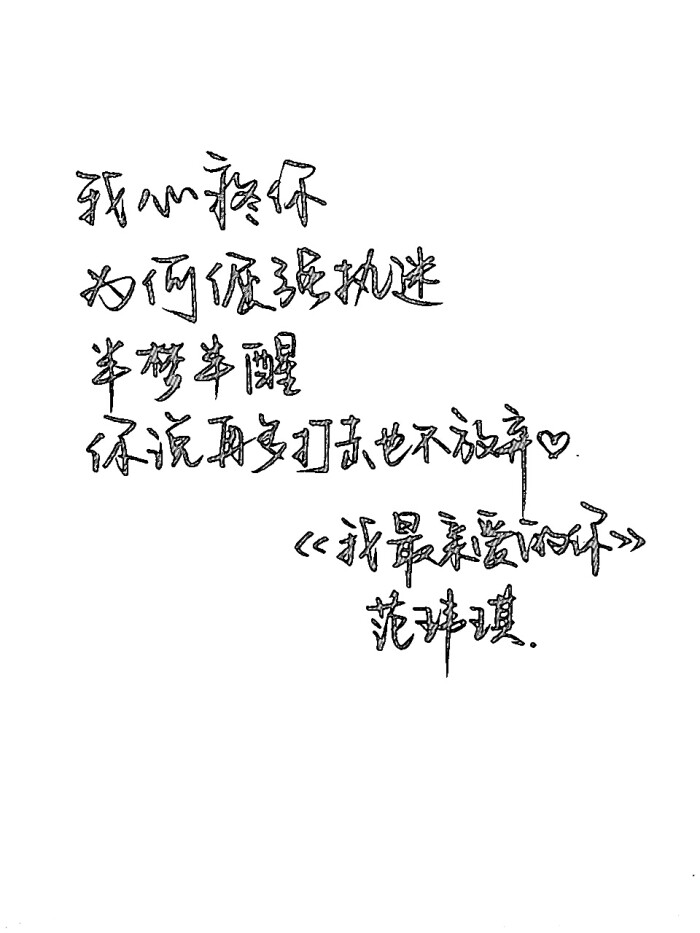 我心疼你
为何倔强执迷
半梦半醒
你说再多打击也不放弃♡.
《我最亲爱的你》
范玮琪.